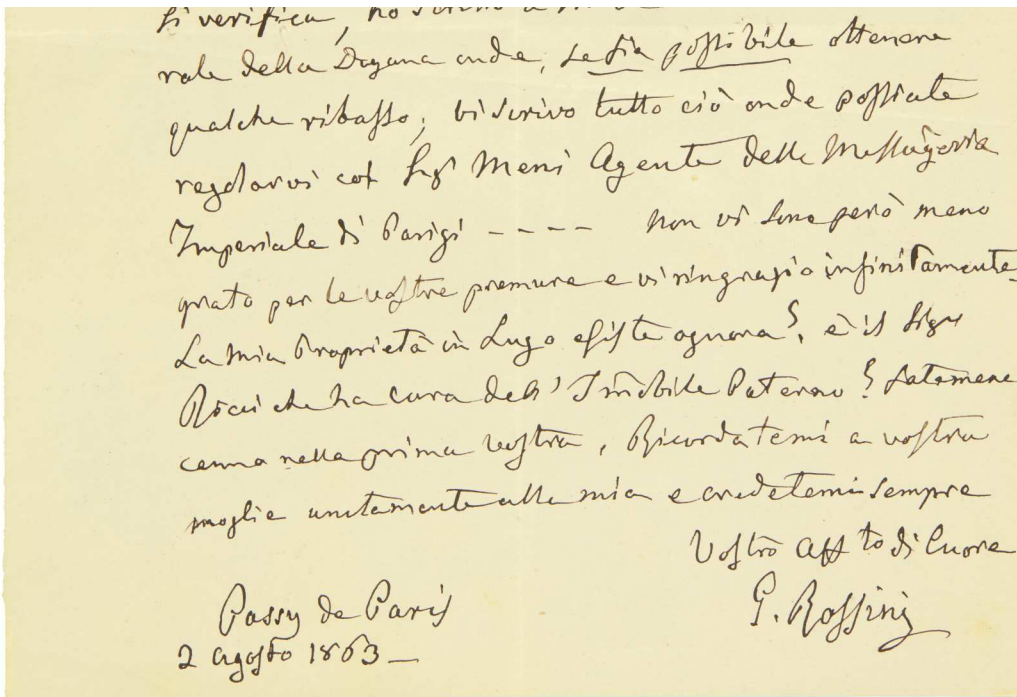 si verifica, ho scritto a
rale della Dogana onde, se sia possibile ottenere
qualche ribasso; vi scrivo tutto ciò onde possiate
regolarvi col Sigr Meni Agente delle Messagerie
Imperiale di Parigi ---- Non vi sono però meno
grato per le vostre premure e vi ringrazio infinitamente.
La mia Proprietà in Lugo esiste ognora?, è il Sigr
Ricci che ha cura dell' Imobile Paterno? fatemene
cenno nella prima vostra, Ricordatemi a vostra
moglie unitamente alla mia e credetemi sempre
Vostro Affto di Cuore
G. Rossini
Passy de Paris
2 agosto 1863 -